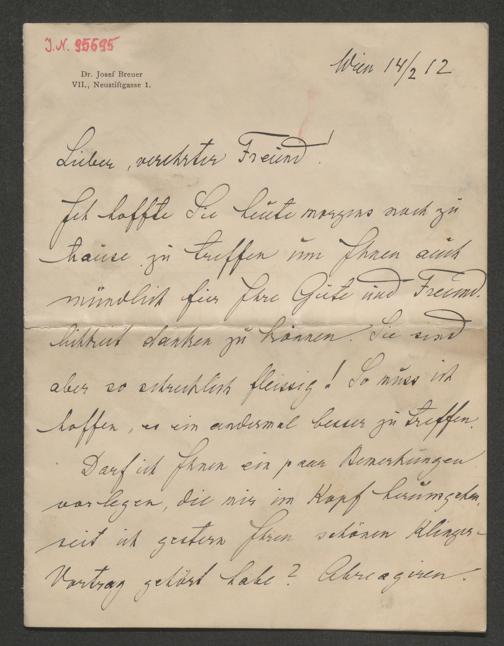 J.N. 95695
Dr. Josef Breuer
VII., Neustiftgasse 1.
Wien 14/2 12
Lieber, verehrter Freund!
Ich hoffte Sie heute morgens noch zu
hause zu treffen um Ihnen auch
mündlich für Ihre Güte und Freund-
lichkeit danken zu können. Sie sind
aber so schrecklich fleissig! So muss ich
hoffen, es ein andermal besser zu treffen.
Darf ich Ihnen ein paar Bemerkungen
vorlegen, die mir im Kopf herumgehn,
seit ich gestern Ihren schönen Klinger-
Vortrag gehört habe? Abreagiren.